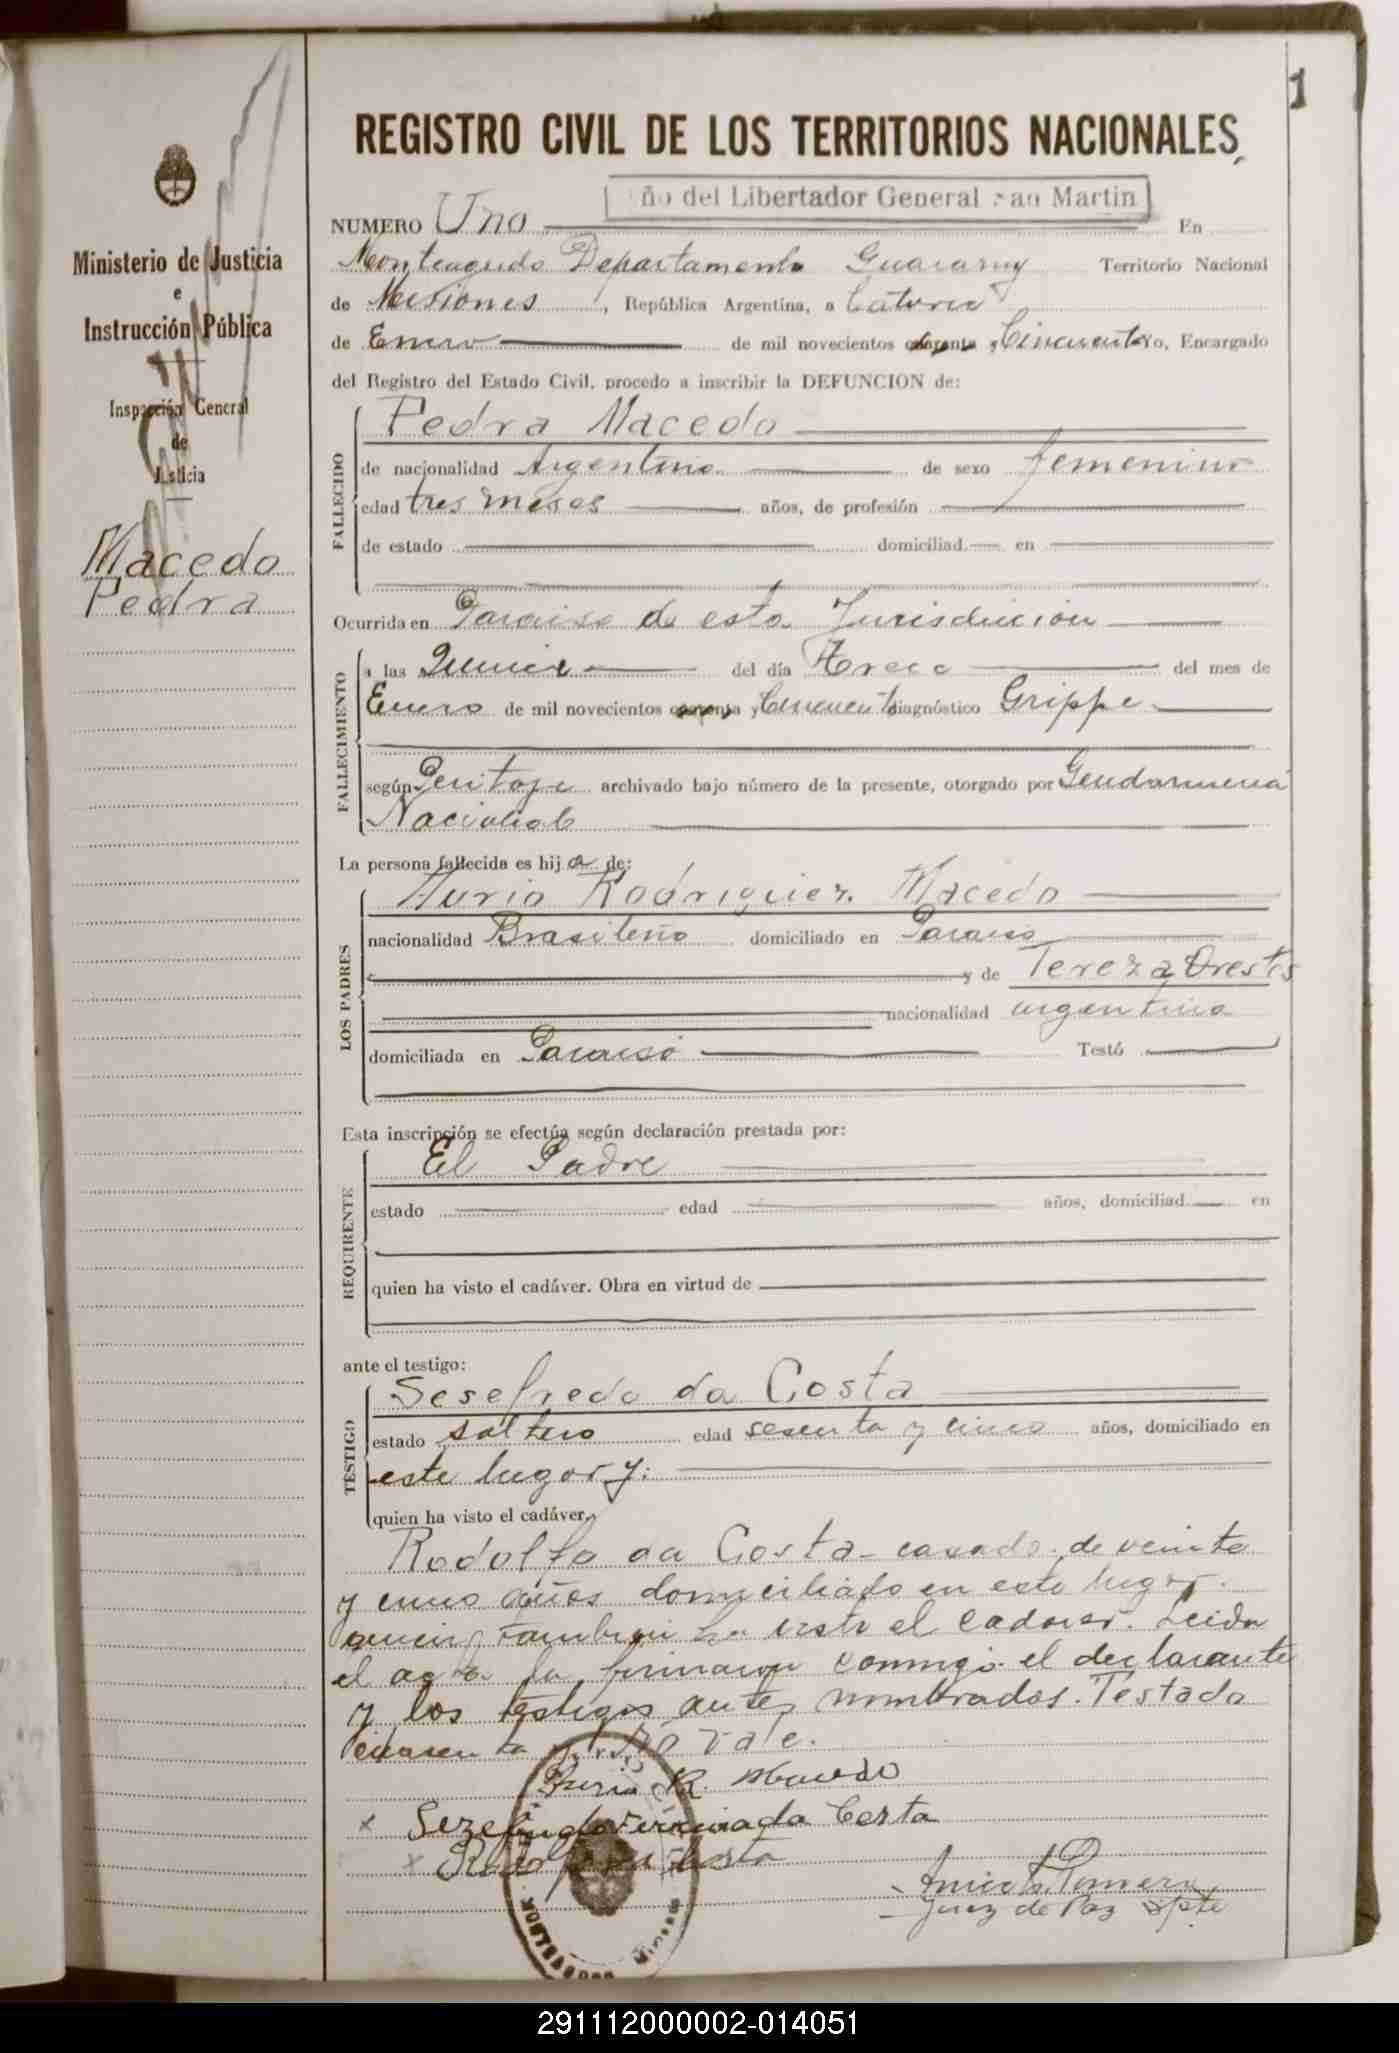 1
REGISTRO CIVIL DE LOS TERRITORIOS NACIONALES
ño del Libertador General San Martin
Ministerio de Justicia
e
Instrucción Pública
Inspección General
de
Justicia
Macedo
Pedra
NUMERO Uno En
Monteagudo Departamento Guarany Territorio Nacional
de Misiones, República Argentina, a Catorce
de Enero de mil novecientos cuarenta y Cincuenta Yo, Encargado
del Registro del Estado Civil, procedo a inscribir la DEFUNCION de:
FALLECIDO
Pedra Macedo
de nacionalidad Argentina de sexo femenino
edad tres meses años, de profesión
de estado domiciliad en
Ocurrida en Paraiso de esta Jurisdiccion
FALLECIMIENTO
a las Quince del día Trece del mes de
Enero de mil novecientos cuarenta y Cincuenta diagnóstico Grippe
según Peritaje archivado bajo número de la presente, otorgado por Gendarmeria
Nacional
La persona fallecida es hija de:
LOS PADRES
Aurio Rodriguez Macedo
nacionalidad Brasileño domiciliado en Paraiso
y de Tereza Orestes
nacionalidad argentina
domiciliada en Paraiso Testó
Esta inscripción se efectúa según declaración prestada por:
REQUIRENTE
El Padre
estado edad años, domiciliad en
quien ha visto el cadáver. Obra en virtud de
ante el testigo:
TESTIGO
Sesefredo da Costa
estado soltero edad sesenta y cinco años, domiciliado en
este lugar y:
quien ha visto el cadáver,
Rodolfo da Costa casado de veinte
y cinco años domiciliado en este lugar.
quien tambien ha visto el cadaver. Leida
el acta la firmaron conmigo el declarante
y los testigos antes nombrados. Testado
cuarenta y No vale.
R. Macedo
x da Costa
x Costa
Juez de Paz Spte
291112000002-014051